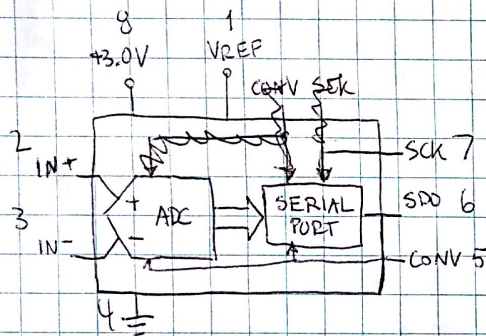 8
+3.0V
1
VREF
CONV
SCK
2
IN+
+
ADC
SERIAL
PORT
SCK 7
SDO 6
3
IN-
-
CONV 5
4